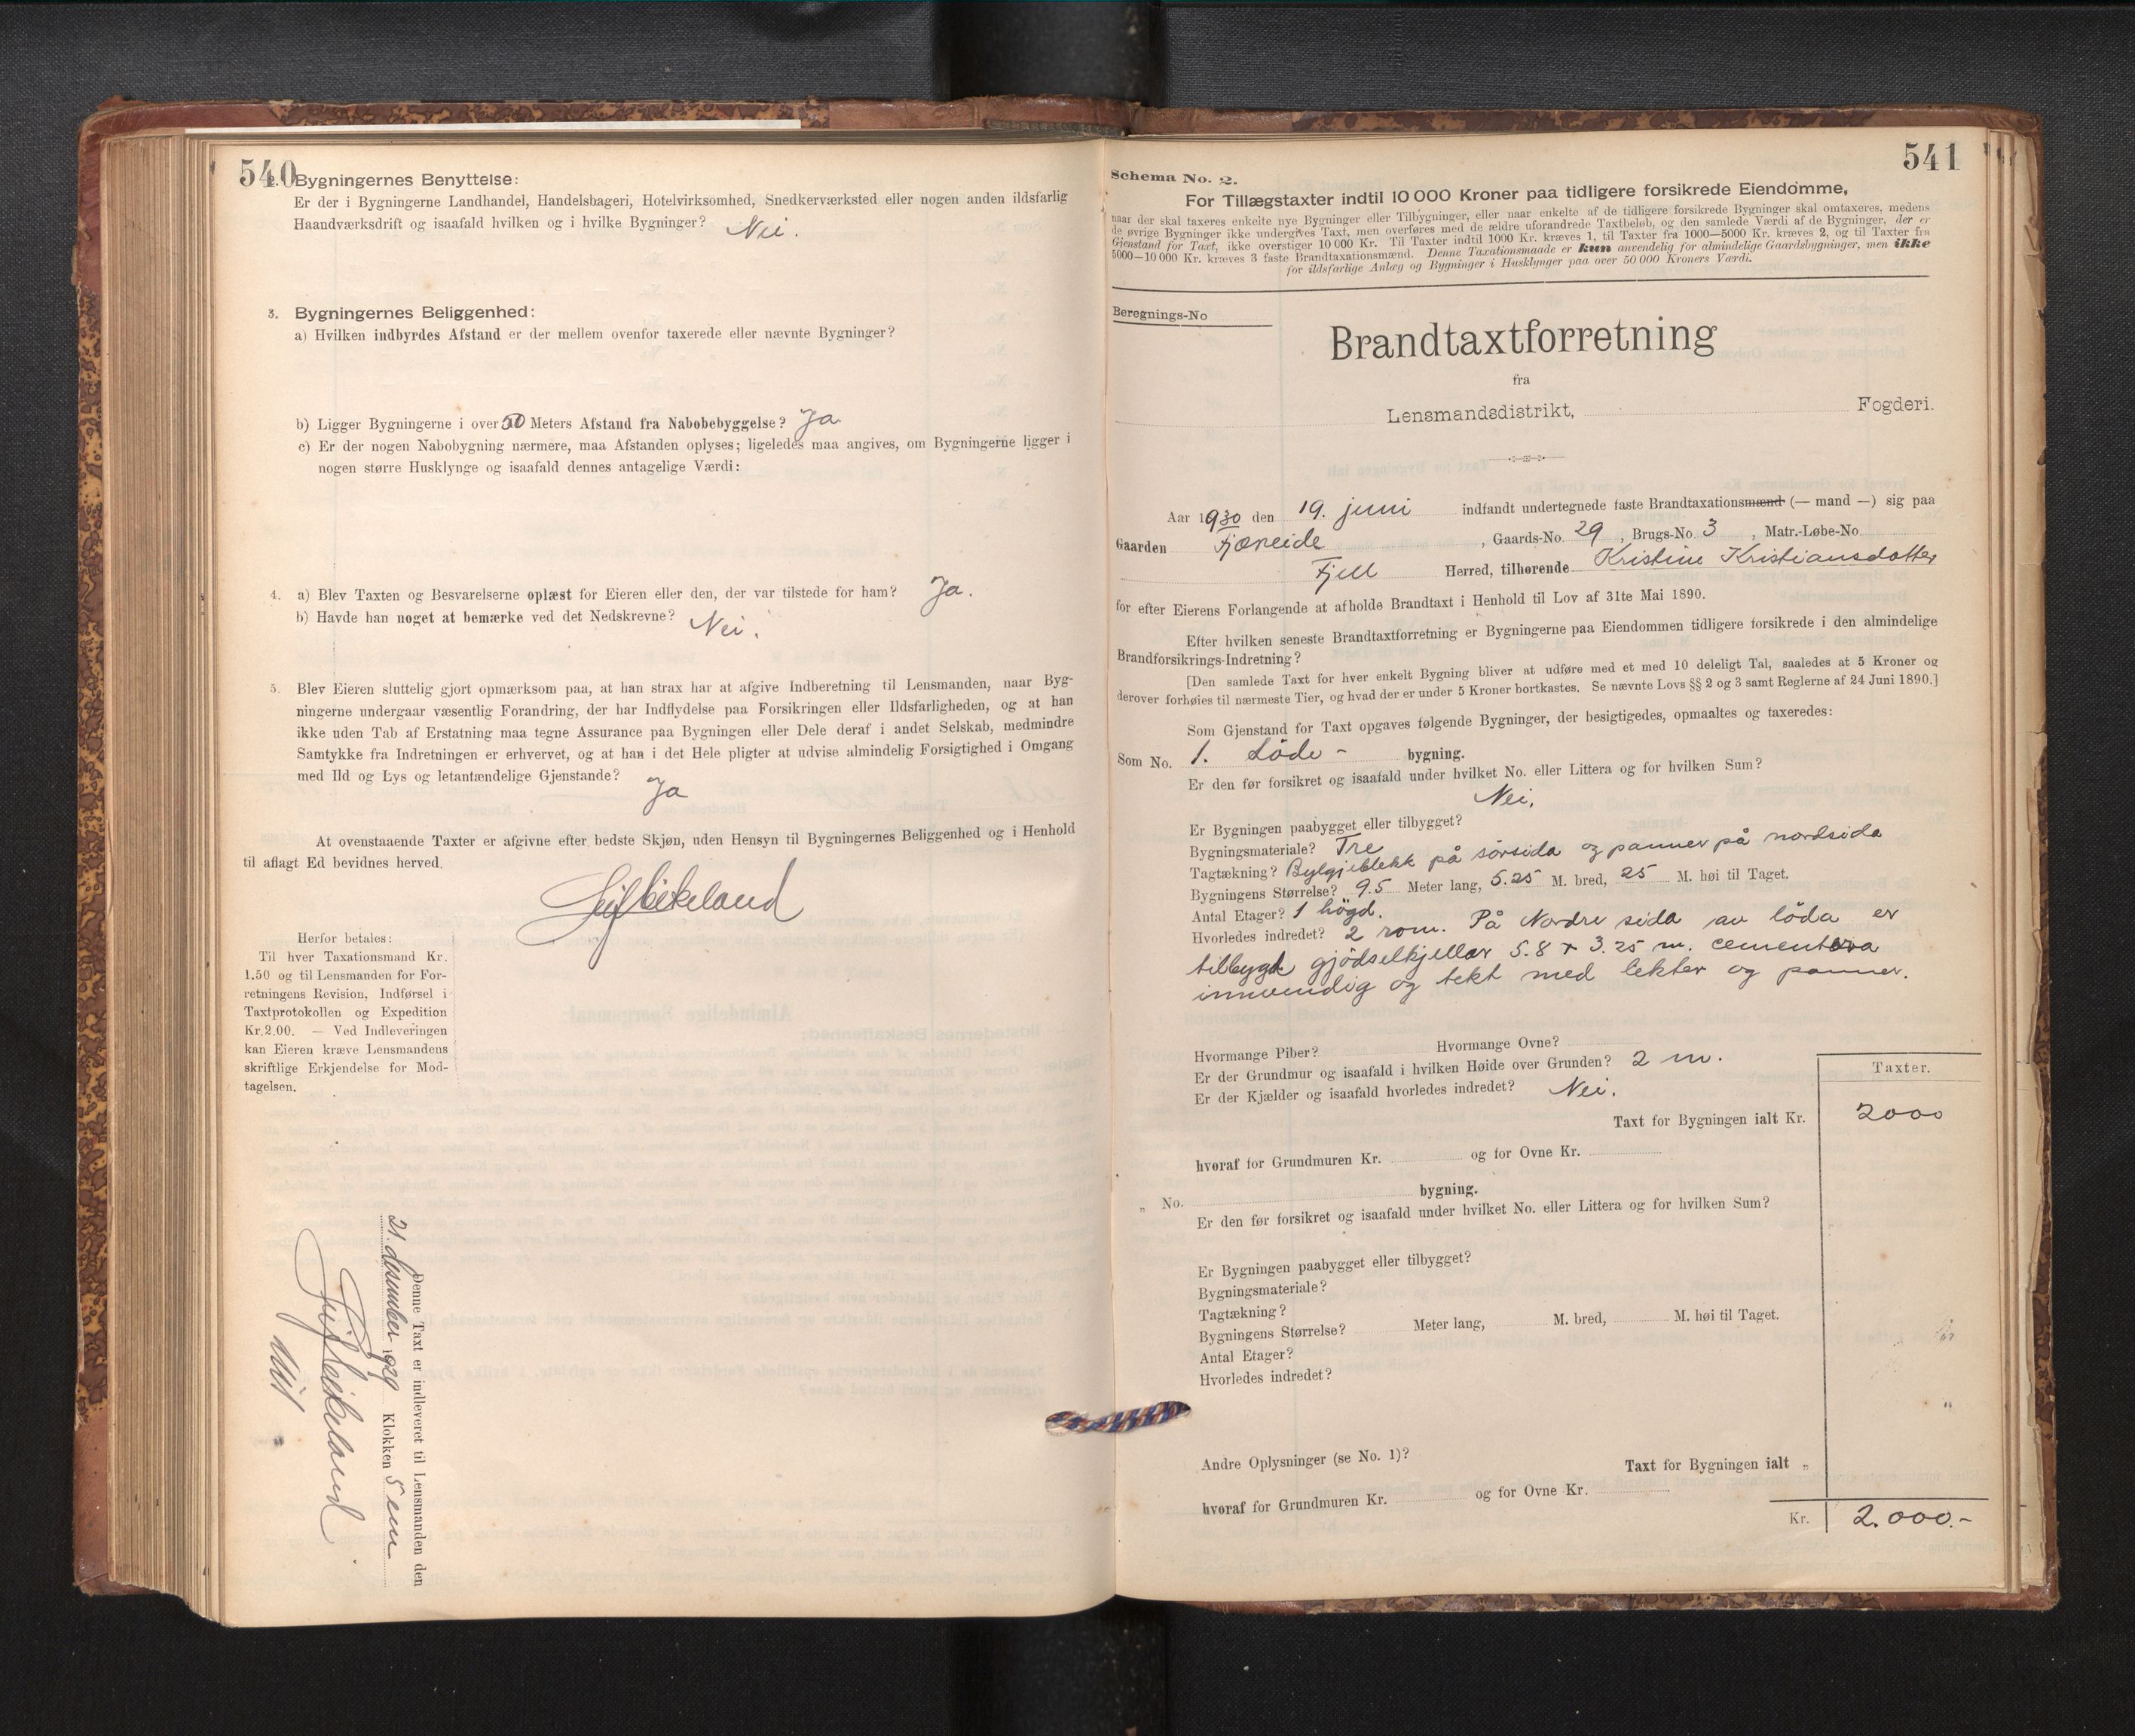 540
2. Bygningernes Benyttelse:
Er der i Bygningerne Landhandel, Handelsbageri, Hotelvirksomhed, Snedkerværksted eller nogen anden ildsfarlig
Haandværksdrift og isaafald hvilken og i hvilke Bygninger? Nei.
3. Bygningernes Beliggenhed:
a) Hvilken indbyrdes Afstand er der mellem ovenfor taxerede eller nævnte Bygninger?
b) Ligger Bygningerne i over 50 Meters Afstand fra Nabobebyggelse? Ja
c) Er der nogen Nabobygning nærmere, maa Afstanden oplyses; ligeledes maa angives, om Bygningerne ligger i
nogen større Husklynge og isaafald dennes antagelige Værdi:
4. a) Blev Taxten og Besvarelserne oplæst for Eieren eller den, der var tilstede for ham? Ja.
b) Havde han noget at bemærke ved det Nedskrevne? Nei.
5. Blev Eieren sluttelig gjort opmærksom paa, at han strax har at afgive Indberetning til Lensmanden, naar Byg-
ningerne undergaar væsentlig Forandring, der har Indflydelse paa Forsikringen eller Ildsfarligheden, og at han
ikke uden Tab af Erstatning maa tegne Assurance paa Bygningen eller Dele deraf i andet Selskab, medmindre
Samtykke fra Indretningen er erhvervet, og at han i det Hele pligter at udvise almindelig Forsigtighed i Omgang
med Ild og Lys og letantændelige Gjenstande? Ja
At ovenstaaende Taxter er afgivne efter bedste Skjøn, uden Hensyn til Bygningernes Beliggenhed og i Henhold
til aflagt Ed bevidnes herved.
Herfor betales:
Til hver Taxationsmand Kr.
1.50 og til Lensmanden for For-
retningens Revision, Indførsel i
Taxtprotokollen og Expedition
Kr. 2.00. — Ved Indleveringen
kan Eieren kræve Lensmandens
skriftlige Erkjendelse for Mod-
tagelsen.
Denne Taxt er indleveret til Lensmanden den
21. desember 1929 Klokken 5 em
541
Schema No. 2.
For Tillægstaxter indtil 10 000 Kroner paa tidligere forsikrede Eiendomme,
naar der skal taxeres enkelte nye Bygninger eller Tilbygninger, eller naar enkelte af de tidligere forsikrede Bygninger skal omtaxeres, medens
de øvrige Bygninger ikke undergives Taxt, men overføres med de ældre uforandrede Taxtbeløb, og den samlede Værdi af de Bygninger, der er
Gjenstand for Taxt, ikke overstiger 10 000 Kr. Til Taxter indtil 1000 Kr. kræves 1, til Taxter fra 1000—5000 Kr. kræves 2, og til Taxter fra
5000—10 000 Kr. kræves 3 faste Brandtaxationsmænd. Denne Taxationsmaade er kun anvendelig for almindelige Gaardsbygninger, men ikke
for ildsfarlige Anlæg og Bygninger i Husklynger paa over 50 000 Kroners Værdi.
Beregnings-No
Brandtaxtforretning
fra
Lensmandsdistrikt, Fogderi.
Aar 1930 den 19. juni indfandt undertegnede faste Brandtaxationsmænd (— mand —) sig paa
Gaarden Fjæreide, Gaards-No. 29, Brugs-No. 3, Matr.-Løbe-No
Fjell Herred, tilhørende Kristine Kristiansdotter
for efter Eierens Forlangende at afholde Brandtaxt i Henhold til Lov af 31te Mai 1890.
Efter hvilken seneste Brandtaxtforretning er Bygningerne paa Eiendommen tidligere forsikrede i den almindelige
Brandforsikrings-Indretning?
[Den samlede Taxt for hver enkelt Bygning bliver at udføre med et med 10 deleligt Tal, saaledes at 5 Kroner og
derover forhøies til nærmeste Tier, og hvad der er under 5 Kroner bortkastes. Se nævnte Lovs §§ 2 og 3 samt Reglerne af 24 Juni 1890.]
Som Gjenstand for Taxt opgaves følgende Bygninger, der besigtigedes, opmaaltes og taxeredes:
Som No. 1. Löde- bygning.
Er den før forsikret og isaafald under hvilket No. eller Littera og for hvilken Sum?
Nei.
Er Bygningen paabygget eller tilbygget?
Bygningsmateriale? Tre
Tagtækning? Bylgjeblekk på sörsida og panner på nordsida
Bygningens Størrelse? 9.5 Meter lang, 5.25 M. bred, 25 M. høi til Taget.
Antal Etager? 1 högd.
Hvorledes indredet? 2 rom. På Nordre sida av löda er
tilbygd gjödselkjellar 5.8 x 3.25 m. cementera
innvendig og tekt med lekter og panner.
Hvormange Piber? Hvormange Ovne?
Er der Grundmur og isaafald i hvilken Høide over Grunden? 2 m.
Er der Kjælder og isaafald hvorledes indredet? Nei.
Taxter.
Taxt for Bygningen ialt Kr. 2000
hvoraf for Grundmuren Kr. og for Ovne Kr.
„ No. bygning.
Er den før forsikret og isaafald under hvilket No. eller Littera og for hvilken Sum?
Er Bygningen paabygget eller tilbygget?
Bygningsmateriale?
Tagtækning?
Bygningens Størrelse? Meter lang, M. bred, M. høi til Taget.
Antal Etager?
Hvorledes indredet?
Andre Oplysninger (se No. 1)?
Taxt for Bygningen ialt „
hvoraf for Grundmuren Kr. og for Ovne Kr.
Kr. 2.000.-